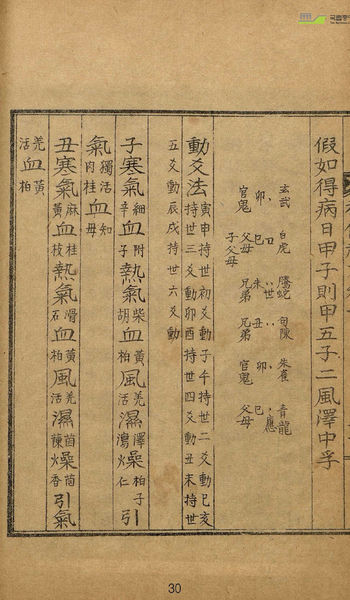 假如得病日甲子則甲五子二風澤中孚
玄武 白虎 螣蛇 句陳 朱雀 青龍
卯、 巳 未世 丑 卯、 巳、應
官鬼 父母 兄弟 兄弟 官鬼 父母
子父母
動爻法 寅申持世初爻動子午持世二爻動巳亥
持世三爻動卯酉持世四爻動丑未持世
五爻動辰戌持世六爻動
子寒氣細辛血附子熱氣柴胡血黃柏風羌活濕澤瀉燥柏子仁引
氣獨活肉桂血知母
丑寒氣麻黃血桂枝熱氣滑石血黃柏風羌活濕茵蔯燥茴香引氣
羌活血黃柏
30